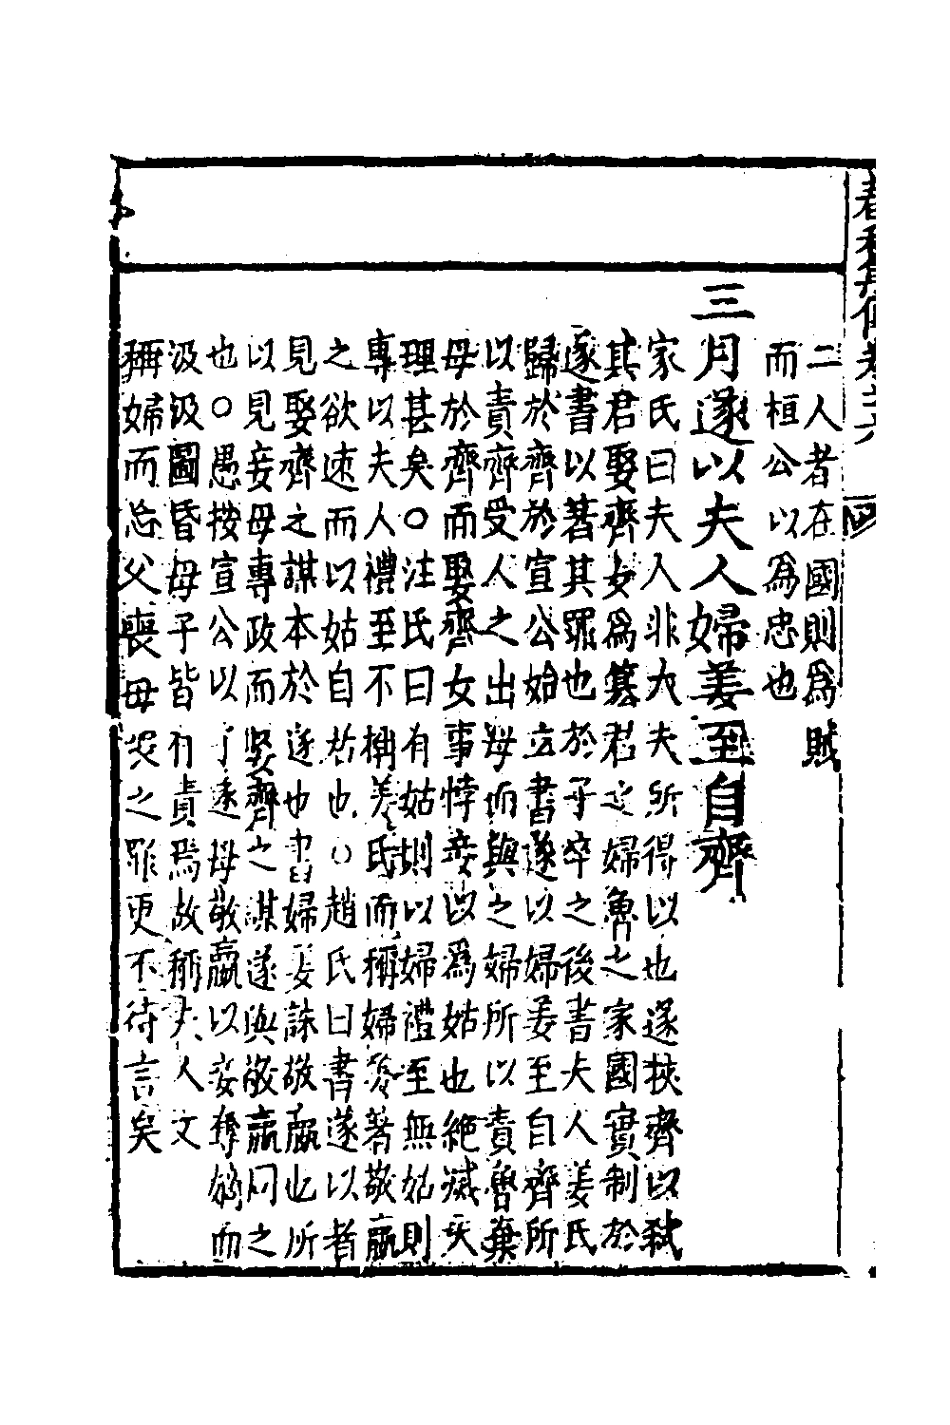 二人者在國則爲賊
而桓公以爲忠也
三月遂以夫人婦姜至自齊
家氏曰夫人非大夫所得以也遂挾齊以弑
其君娶齊女爲簒君之婦魯之家國實制於
遂書以著其罪也於子卒之後書夫人姜氏
歸於齊於宣公始立書遂以婦姜至自齊所
以責齊受人之出母而與之婦所以責魯棄
母於齊而娶齊女事悖妾以爲姑也絶滅天
理甚矣○汪氏曰有姑則以婦禮至無姑則
專以夫人禮至不稱姜氏而稱婦姜著敬嬴
之欲速而以姑自居也○趙氏曰書遂以者
見娶齊之謀本於遂也書婦姜誅敬嬴也所
以見妾母專政而娶齊之謀遂與敬嬴同之
也○愚按宣公以子遂母敬嬴以妾奪嫡而
汲汲圖昏母子皆有責焉故稱夫人文
稱婦而忘父喪母喪之罪更不待言矣